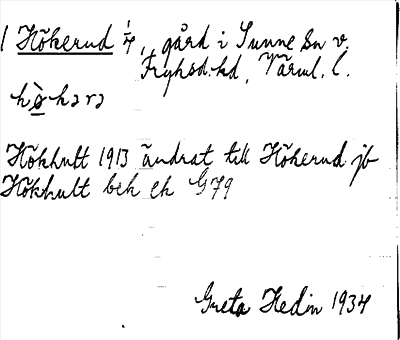 1 Hökerud 1/4, gård i Sunne sn v.
Fryksd. hd, Värml. l.
hø̀kərə
Hökhult 1913 ändrat till Hökerud jb
Hökhult beh ek G79
Greta Hedin 1934